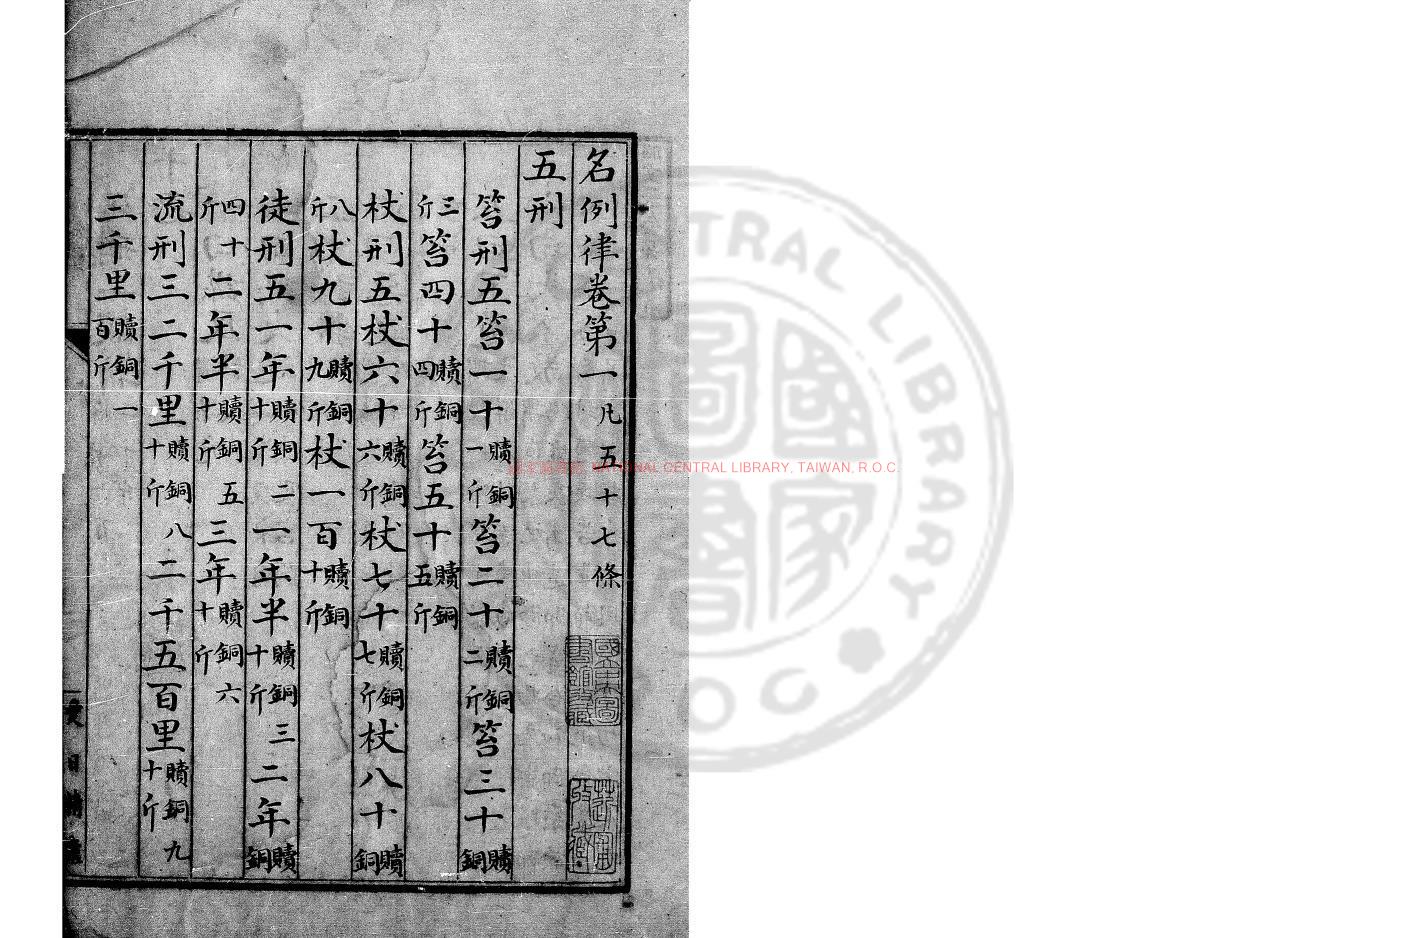 名例律卷第一凡五十七條
五刑
笞刑五笞一十贖銅一斤笞二十贖銅二斤笞三十贖銅
三斤笞四十贖銅四斤笞五十贖銅五斤
杖刑五杖六十贖銅六斤杖七十贖銅七斤杖八十贖銅
八斤杖九十贖銅九斤杖一百贖銅十斤
徒刑五一年贖銅二十斤一年半贖銅三十斤二年贖銅
四十斤二年半贖銅五十斤三年贖銅六十斤
流刑三二千里贖銅八十斤二千五百里贖銅九十斤
三千里贖銅一百斤
NATIONAL CENTRAL LIBRARY, TAIWAN, R.O.C.